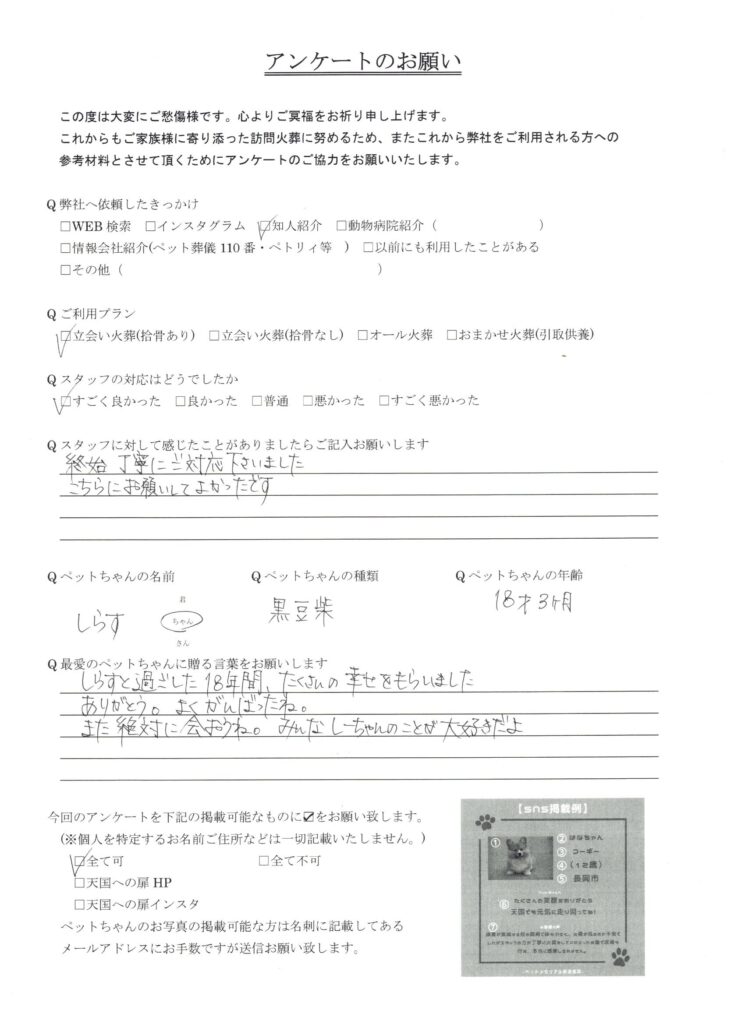 アンケートのお願い
この度は大変にご愁傷様です。心よりご冥福をお祈り申し上げます。
これからもご家族様に寄り添った訪問火葬に努めるため、またこれから弊社をご利用される方への
参考材料とさせて頂くためにアンケートのご協力をお願いいたします。
Q 弊社へ依頼したきっかけ
□WEB 検索 □インスタグラム ☑知人紹介 □動物病院紹介（ ）
□情報会社紹介(ペット葬儀 110 番・ペトリィ等 ) □以前にも利用したことがある
□その他（ ）
Q ご利用プラン
☑立会い火葬(拾骨あり) □立会い火葬(拾骨なし) □オール火葬 □おまかせ火葬(引取供養)
Q スタッフの対応はどうでしたか
☑すごく良かった □良かった □普通 □悪かった □すごく悪かった
Q スタッフに対して感じたことがありましたらご記入お願いします
終始 丁寧にご対応下さいました
こちらにお願いしてよかったです
Q ペットちゃんの名前 Q ペットちゃんの種類 Q ペットちゃんの年齢
君
しらす ちゃん 黒豆柴 18才3ヶ月
さん
Q 最愛のペットちゃんに贈る言葉をお願いします
しらすと過ごした18年間、たくさんの幸せをもらいました
ありがとう。よくがんばったね。
また絶対に会おうね。みんなしーちゃんのことが大好きだよ
今回のアンケートを下記の掲載可能なものに☑をお願い致します。
(※個人を特定するお名前ご住所などは一切記載いたしません。)
☑全て可 □全て不可
□天国への扉 HP
□天国への扉インスタ
ペットちゃんのお写真の掲載可能な方は名刺に記載してある
メールアドレスにお手数ですが送信お願い致します。
【sns掲載例】
① ② はなちゃん
③ コーギー
④ （12歳）
⑤ 長岡市
⑥ たくさんの笑顔をありがとう
天国でも元気に走り回ってね！
⑦